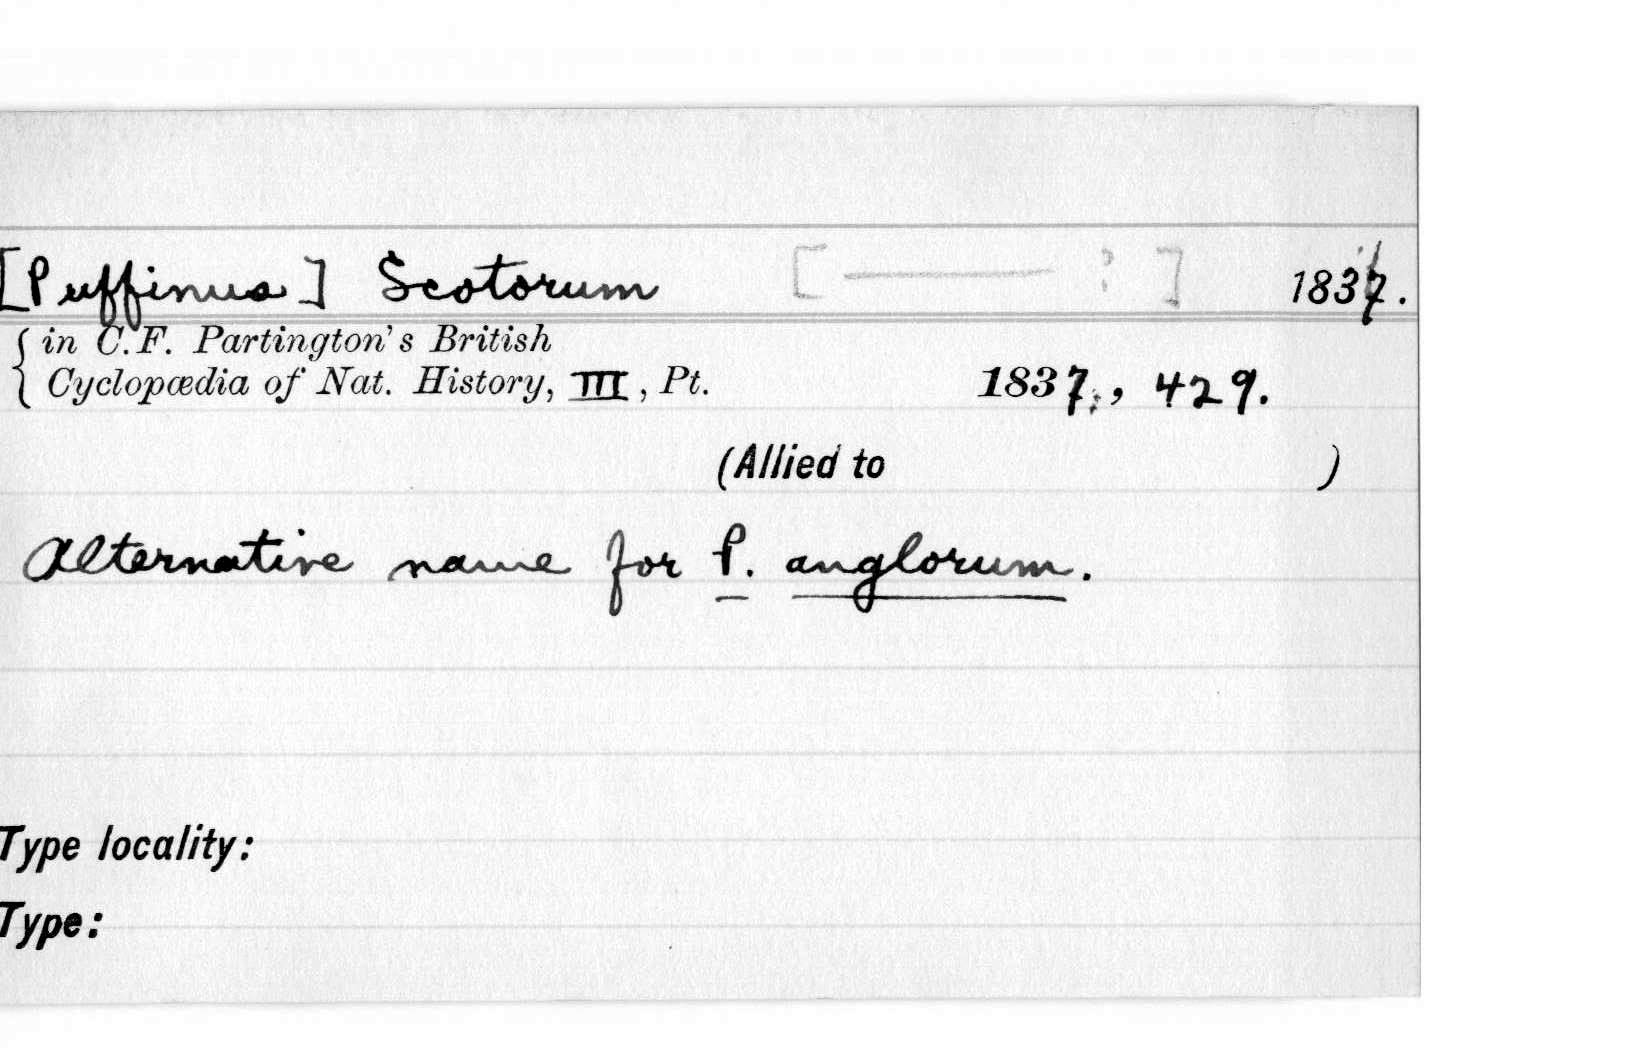 [Puffinus] Scotorum [ — ? ] 1837.
in C.F. Partington's British
Cyclopædia of Nat. History, III, Pt. 1837, 429.
(Allied to )
Alternative name for P. anglorum.
Type locality:
Type: